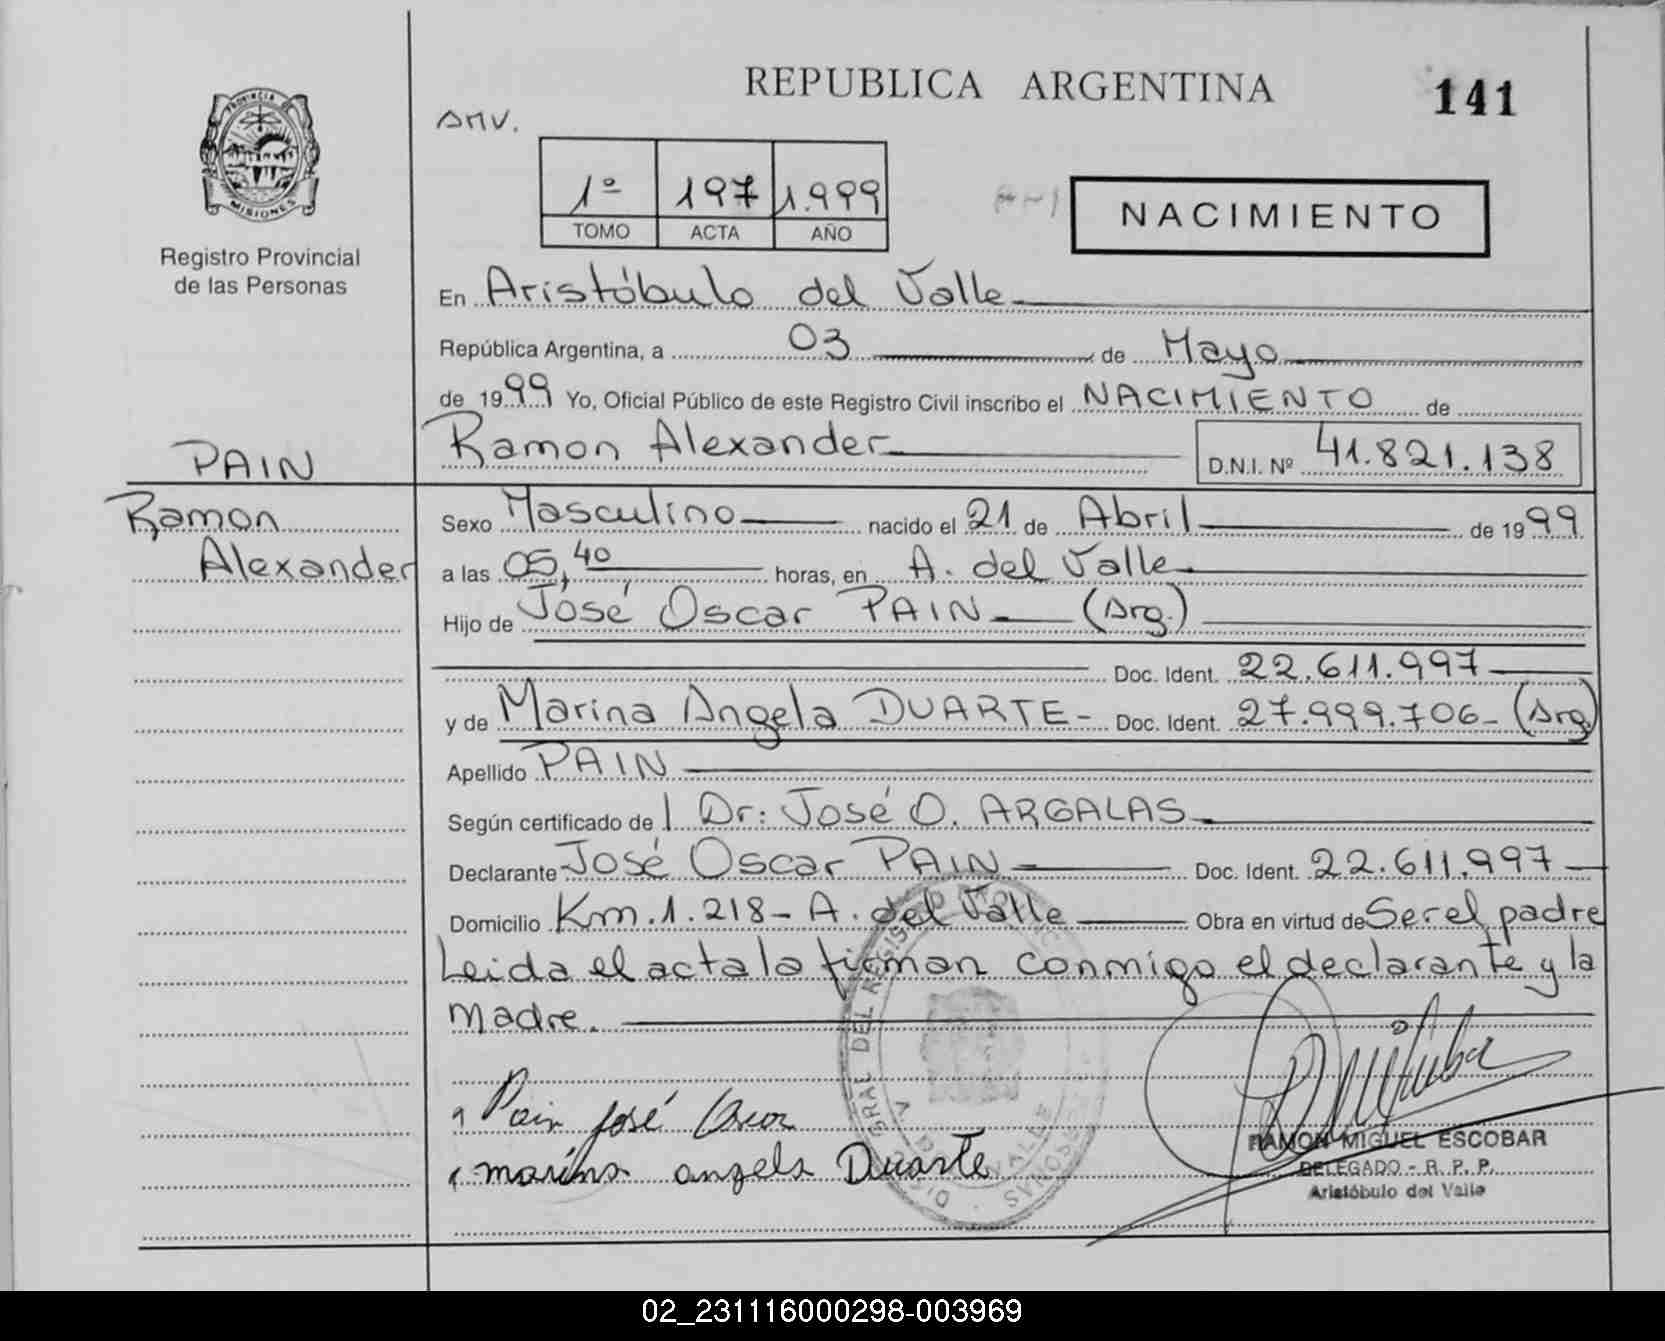 REPUBLICA ARGENTINA
141
PROVINCIA DE
MISIONES
Registro Provincial
de las Personas
AMV.
1º 197 1.999
TOMO ACTA AÑO
NACIMIENTO
En Aristóbulo del Valle
República Argentina, a 03 de Mayo
de 1999 Yo, Oficial Público de este Registro Civil inscribo el NACIMIENTO de
Ramon Alexander D.N.I. Nº 41.821.138
PAIN
Ramon
Alexander
Sexo Masculino nacido el 21 de Abril de 1999
a las 05,40 horas, en A. del Valle
Hijo de José Oscar PAIN (Arg.)
Doc. Ident. 22.611.997
y de Marina Angela DUARTE- Doc. Ident. 27.999.706- (Arg)
Apellido PAIN
Según certificado de Dr: José O. ARGALAS
Declarante José Oscar PAIN Doc. Ident. 22.611.997
Domicilio Km.1.218- A. del Valle Obra en virtud de Ser el padre
Leida el acta la firman conmigo el declarante y la
Madre.
Pain José Oscar
marina angela Duarte
RAMON MIGUEL ESCOBAR
DELEGADO - R. P. P.
Aristóbulo del Valle
02_231116000298-003969